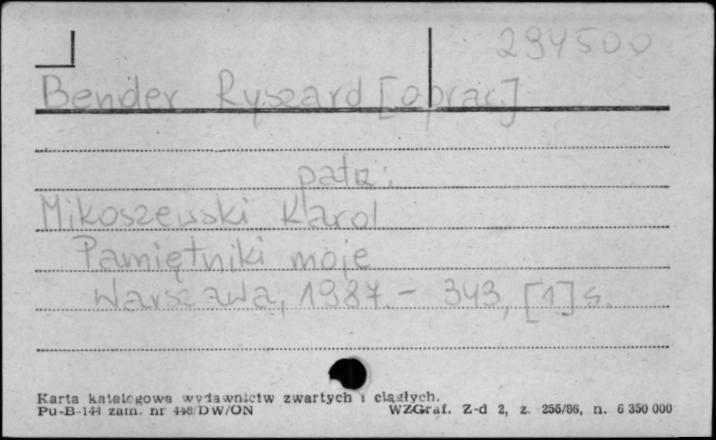 294500
Bender Ryszard [oprac]
patrz:
Mikoszewski Karol
Pamiętniki moje
Warszawa, 1987.- 343, [1] s.
Karta katalogowa wydawnictw zwartych i ciągłych.
Pu-B-144 zam. nr 448/DW/ON WZGraf. Z-d 2, z. 256/86, n. 6 350 000